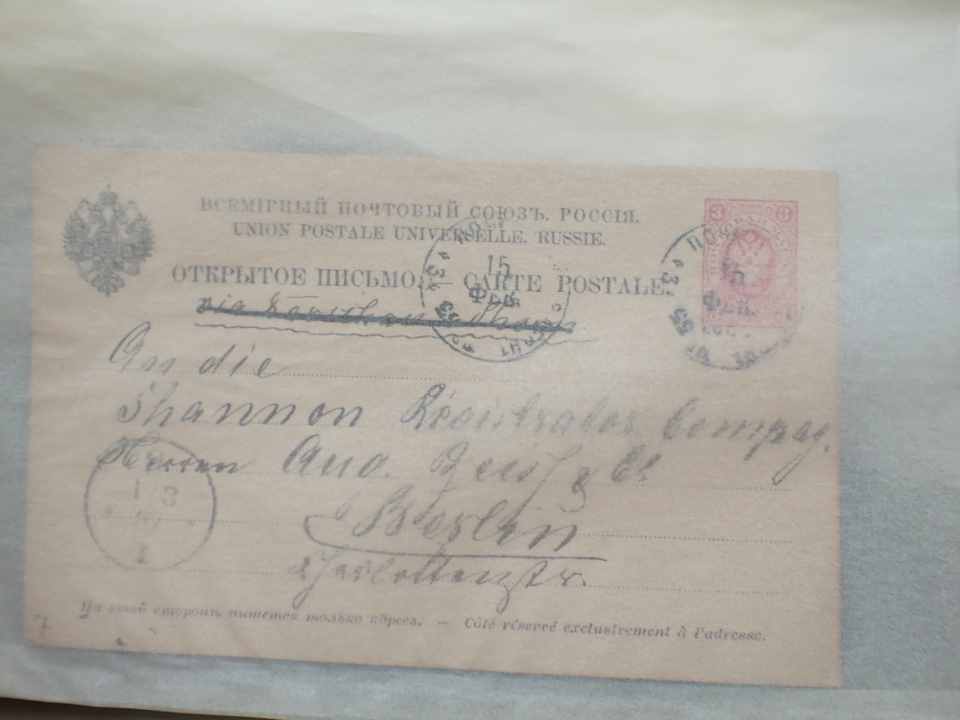 ВСЕМІРНЫЙ ПОЧТОВЫЙ СОЮЗЪ. РОССІЯ.
UNION POSTALE UNIVERSELLE. RUSSIE.
ОТКРЫТОЕ ПИСЬМО. — CARTE POSTALE.
3 3
15
Фев.
15
Фев.
via
An die
Shannon Registrator Compag.
Herren Aug. Zeiss & Co
Berlin
Charlottenstr.
На этой сторонѣ пишется только адресъ. — Côté réservé exclusivement à l'adresse.